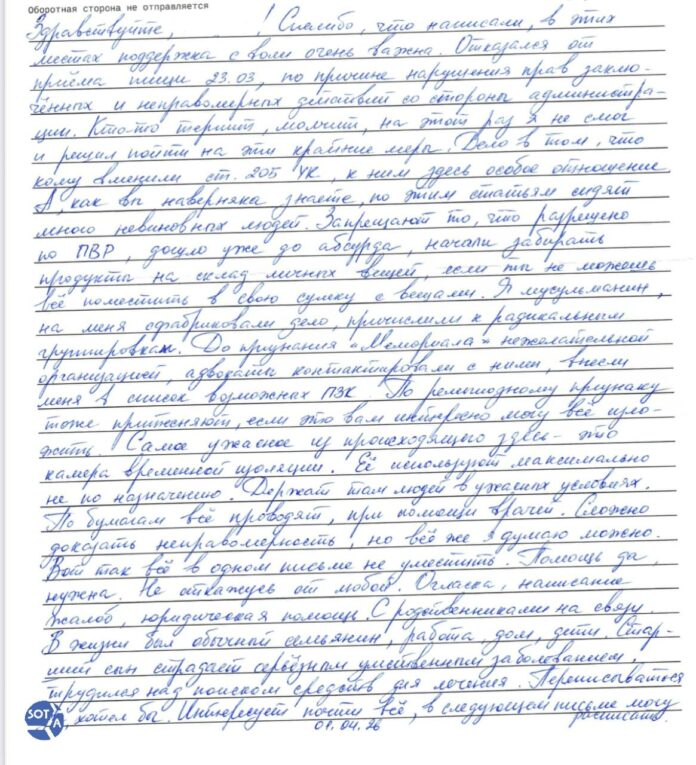 Оборотная сторона не отправляется
Здравствуйте, ! Спасибо, что написали, в этих
местах поддержка с воли очень важна. Отказался от
приёма пищи 23.03, по причине нарушения прав заклю-
чённых и неправомерных действий со стороны администра-
ции. Кто-то терпит, молчит, на этот раз я не смог
и решил пойти на эти крайние меры. Дело в том, что
кому вменили ст. 205 УК, к ним здесь особое отношение.
А, как вы наверняка знаете, по этим статьям сидят
много невиновных людей. Запрещают то, что разрешено
по ПВР, дошло уже до абсурда, начали забирать
продукты на склад личных вещей, если ты не можешь
всё поместить в свою сумку с вещами. Я мусульманин,
на меня сфабриковали дело, причислили к радикальным
группировкам. До признания «Мемориала» нежелательной
организацией, адвокаты контактировали с ними, внесли
меня в список возможных ПЗК. По религиозному признаку
тоже притесняют, если это вам интересно могу всё изло-
жить. Самое ужасное из происходящего здесь - это
камера временной изоляции. Её используют максимально
не по назначению. Держат там людей в ужасных условиях.
По бумагам всё проводят, при помощи врачей. Сложно
доказать неправомерность, но всё же я думаю можно.
Вот так всё в одном письме не уместить. Помощь да,
нужна. Не откажусь от любой. Огласка, написание
жалоб, юридическая помощь. С родственниками на связи.
В жизни был обычный семьянин, работа, дом, дети. Стар-
ший сын страдает серьёзным умственным заболеванием,
трудился над поиском средств для лечения. Переписываться
хотел бы. Интересует почти всё, в следующем письме могу
расписать.
01.04.26
SOTA